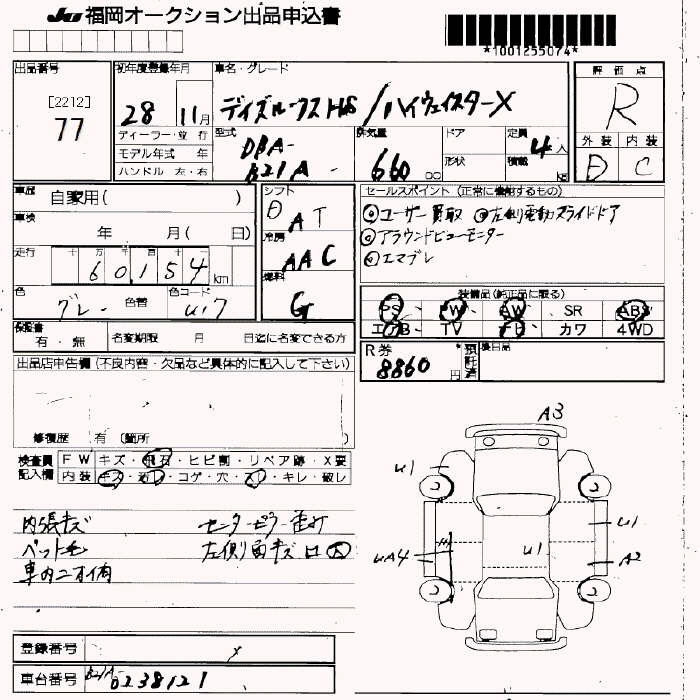 JU福岡オークション出品申込書
*1001255074*
出品番号
[2212]
77
初年度登録年月
28
11月
ディーラー・並行
モデル年式 年
ハンドル 左・右
車名・グレード
デイズルークス /ハイウェイスターX
型式
DBA-
B21A-
排気量
660 cc
ドア
形状
定員
4人
積載
kg
評価点
R
外装 内装
D C
車歴
自家用( )
車検
年 月( 日)
走行
十 万 千 百 十
60154 km
色
グレー
色替
色コード
シフト
AT
冷房
AAC
燃料
G
セールスポイント (正常に機能するもの)
ユーザー買取 左側電動スライドドア
アラウンドビューモニター
エマブレ
装備品(純正品に限る)
PS PW AW SR ABS
エアB TV ナビ カワ 4WD
保証書
有・無
名変期限 月 日迄に名変できる方
R券
8860円
預託済
後日品
出品店申告欄 (不良内容・欠品など具体的に記入して下さい)
修復歴 有 (箇所
検査員
記入欄
FW キズ・飛石・ヒビ割・リペア跡・X要
内装 キズ・汚れ・コゲ・穴・スレ・キレ・破レ
内張キズ センターピラー歪み
ペット毛
車内ニオイ有
A3
U1
U1
UA4
U1
A2
登録番号
車台番号
B21A-
0238121